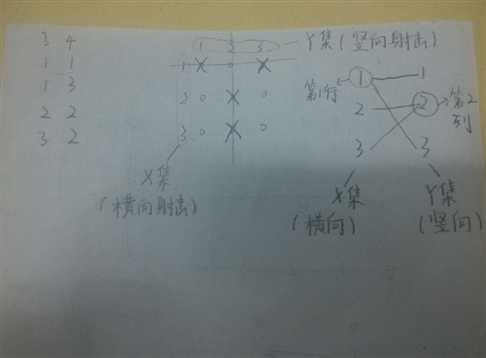 3 4
1 1
1 3
2 2
3 2
1 2 3 Y集(竖向射击)
1 X 0 X
3 0 X 0
3 0 X 0
X集
(横向射击)
第1行 1 1
2 2 第2列
3 3
X集 Y集
(横向) (竖向)